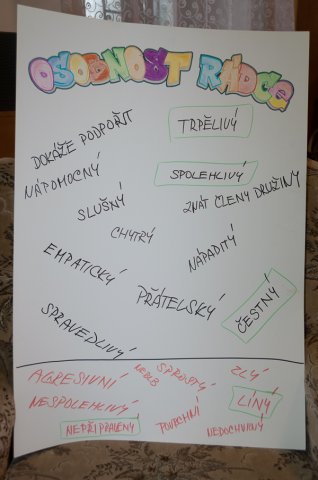 OSOBNOST RÁDCE
DOKÁŽE PODPOŘIT
TRPĚLIVÝ
NÁPOMOCNÝ
SPOLEHLIVÝ
SLUŠNÝ
ZNÁT ČLENY DRUŽINY
CHYTRÝ
NÁPADITÝ
EMPATICKÝ
PŘÁTELSKÝ
ČESTNÝ
SPRAVEDLIVÝ
AGRESIVNÍ
SPROSTÝ
ZLÝ
NESPOLEHLIVÝ
LÍNÝ
POVRCHNÍ
NEPŘIPRAVENÝ
NEDOCHVILNÝ